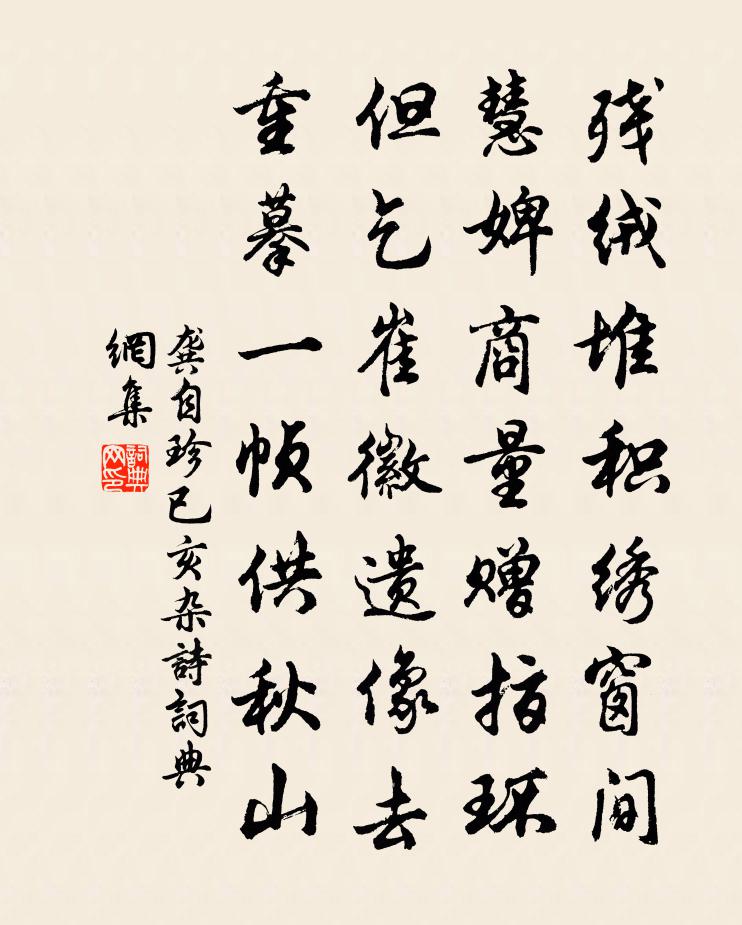 残绒堆积绣窗间
慧婢商量赠指环
但乞崔徽遗像去
重摹一帧供秋山
龚自珍己亥杂詩詞典
網集
詞典网印